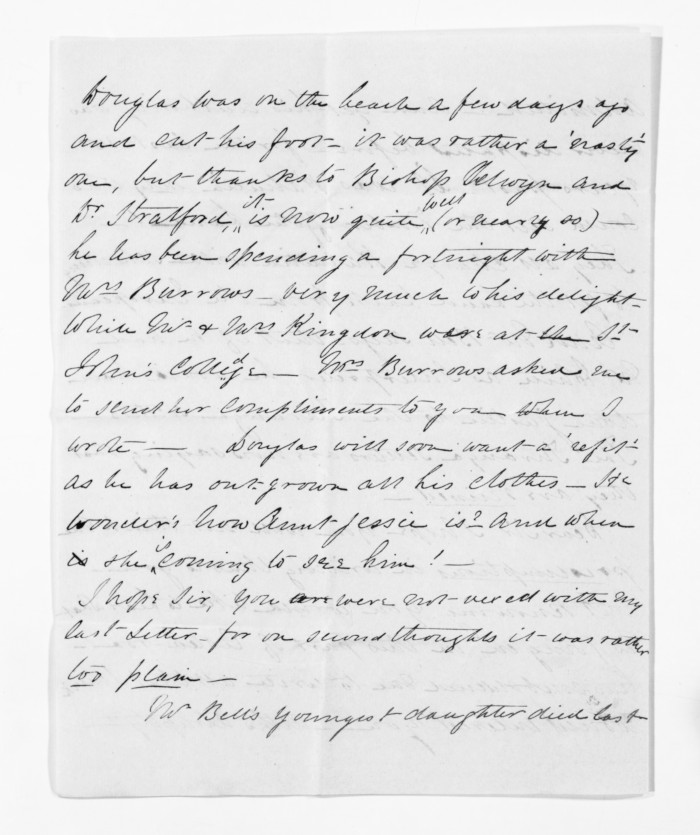 Douglas was on the beach a few days ago
and cut his foot - it was rather a 'nasty'
one, but thanks to Bishop Selwyn and
Dr. Stratford, it is now quite well (or nearly so) -
he has been spending a fortnight with
Mrs Burrows - very much to his delight -
while Mr & Mrs Kingdon were at the St
John's Colledge - Mrs Burrows asked me
to send her compliments to you when I
wrote - Douglas will soon want a 'refit'
as he has out-grown all his clothes - He
wonder's how Aunt Jessie is? and when
is she is coming to see him! -
I hope Sir, you are were not vexed with my
last Letter - for on second thoughts it was rather
too plain -
Mr Bell's youngest daughter died last